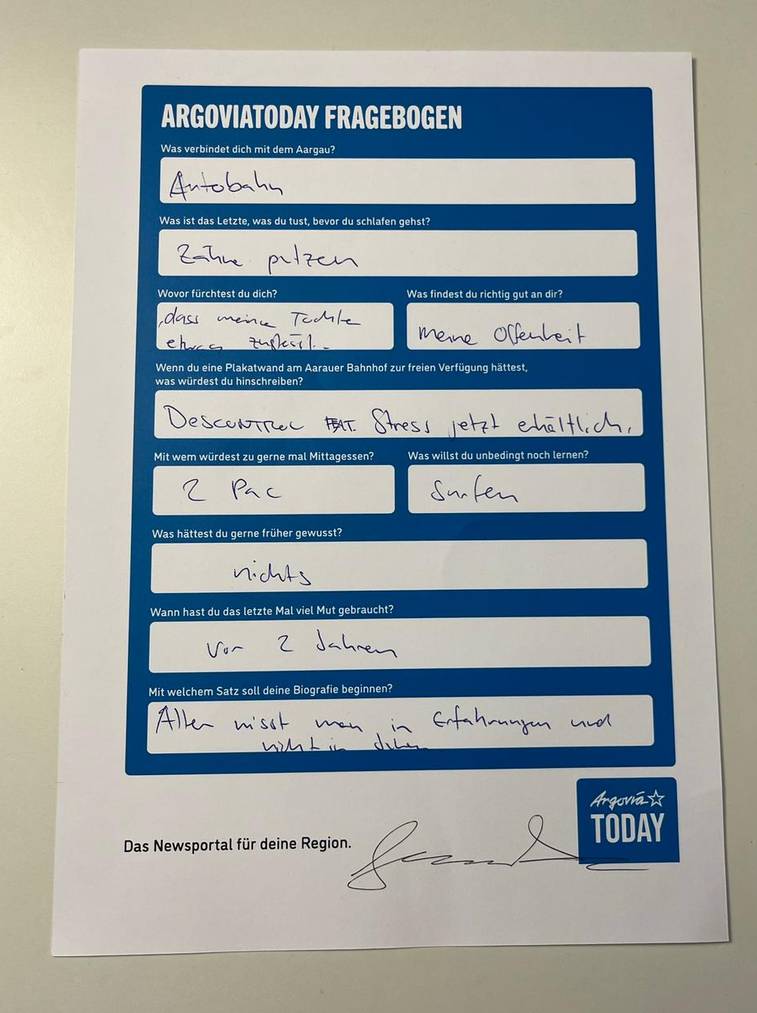 ARGOVIATODAY FRAGEBOGEN
Was verbindet dich mit dem Aargau?
Autobahn
Was ist das Letzte, was du tust, bevor du schlafen gehst?
Zähne putzen
Wovor fürchtest du dich?
dass meine Tochter
etwas zustösst.
Was findest du richtig gut an dir?
meine Offenheit
Wenn du eine Plakatwand am Aarauer Bahnhof zur freien Verfügung hättest,
was würdest du hinschreiben?
DESCONTROL FEAT. Stress jetzt erhältlich.
Mit wem würdest zu gerne mal Mittagessen?
2 Pac
Was willst du unbedingt noch lernen?
Surfen
Was hättest du gerne früher gewusst?
nichts
Wann hast du das letzte Mal viel Mut gebraucht?
vor 2 Jahren
Mit welchem Satz soll deine Biografie beginnen?
Alter misst man in Erfahrungen und
nicht in
Das Newsportal für deine Region.
Argovia
TODAY